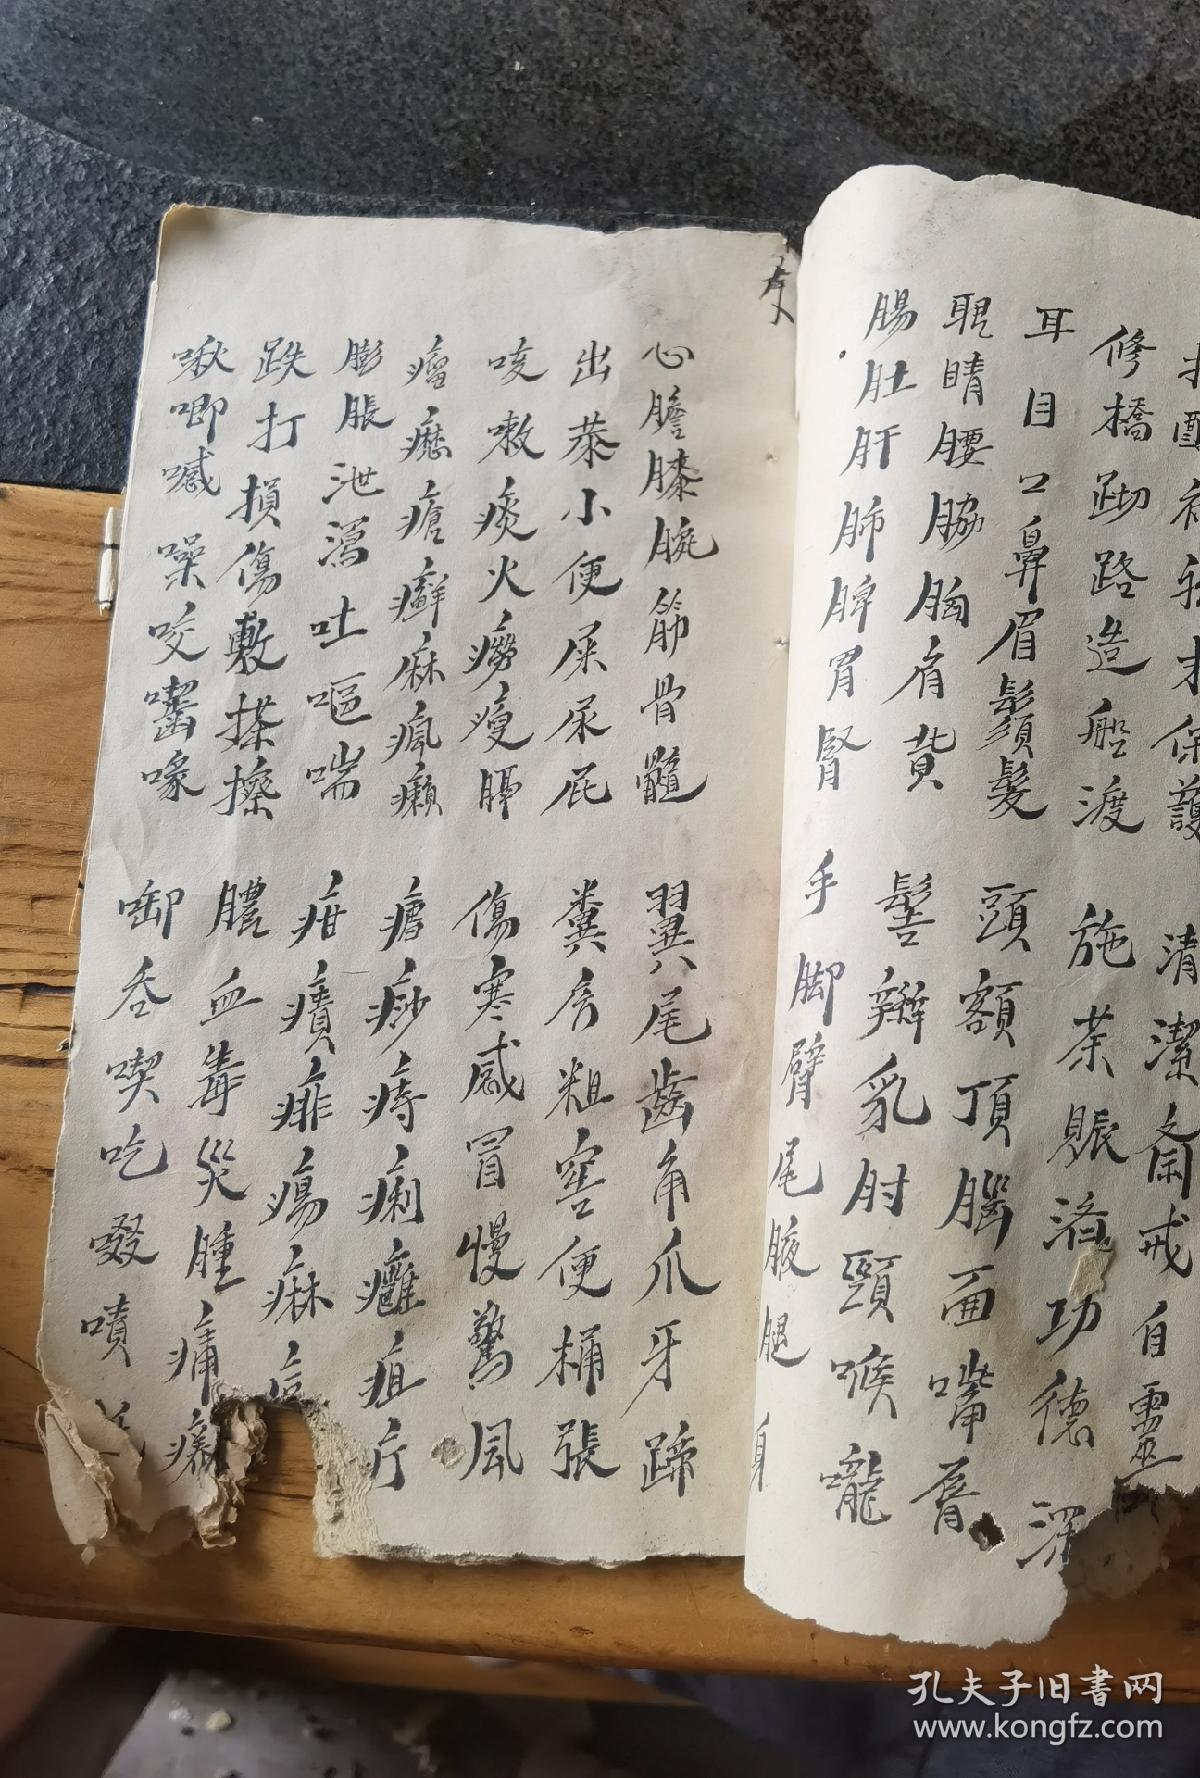 修橋砌路造船渡 施茶賑濟功德
耳目口鼻眉鬚髮 頭額頂腦面嘴唇
眼睛腰脇胸肩背 髻辮乳肘頸喉嚨
腸肚肝肺脾胃腎 手脚臂尾腋腿身
心膽膝腕筋骨髓 翼尾齒角爪牙蹄
出恭小便屎尿屁 糞房粗窖便桶張
咳嗽痰火癆瘦膈 傷寒感冒慢驚風
瘤癧瘡癬麻瘋癩 痧痔痢癰疽疔
膨脹泄瀉吐嘔喘 疳癀痱瘍痳
跌打損傷敷搽擦 膿血毒災腫痛
啾唧喊噪咬嚙喙 啣吞喫吃啜嘖
孔夫子旧书网
www.kongfz.com